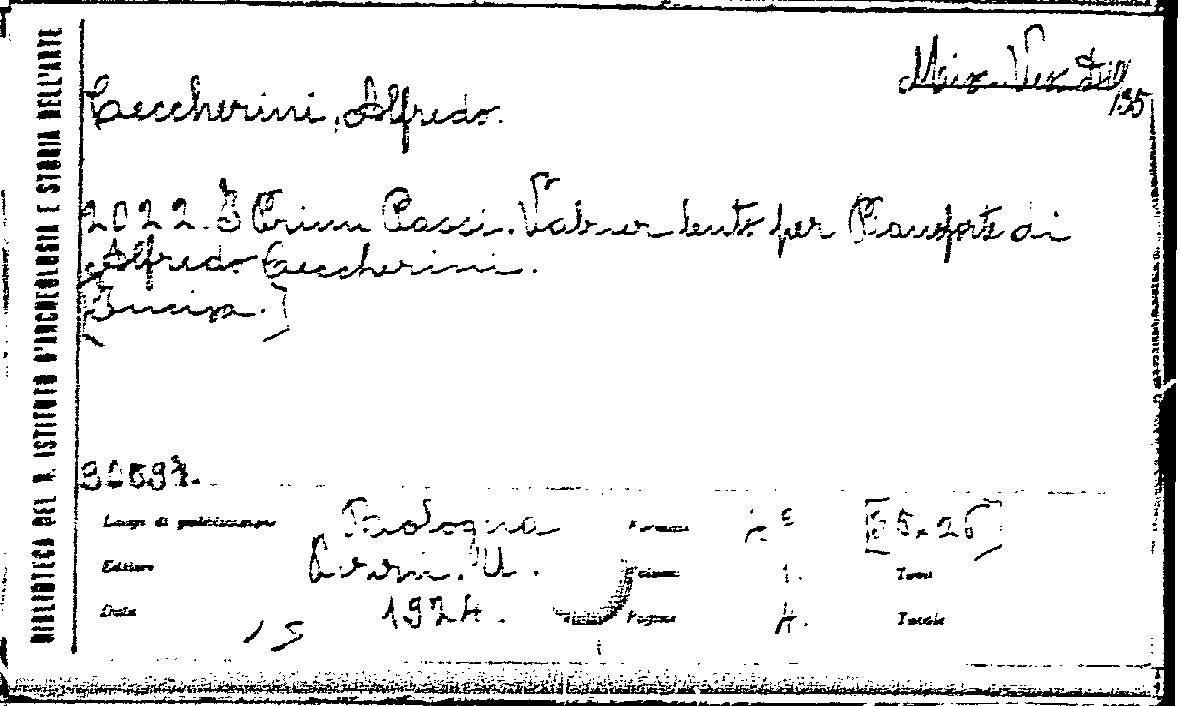 BIBLIOTECA DEL R. ISTITUTO D'ARCHEOLOGIA E STORIA DELL'ARTE
135
Ceccherini, Alfredo.
2022. I Primi Passi. Valzer lento per Pianoforte di
Alfredo Ceccherini.
Luogo di pubblicazione Bologna Formato [35x25]
Editore U. Volumi 1. Tomi
Data 1924. Pagine 4. Totale
15